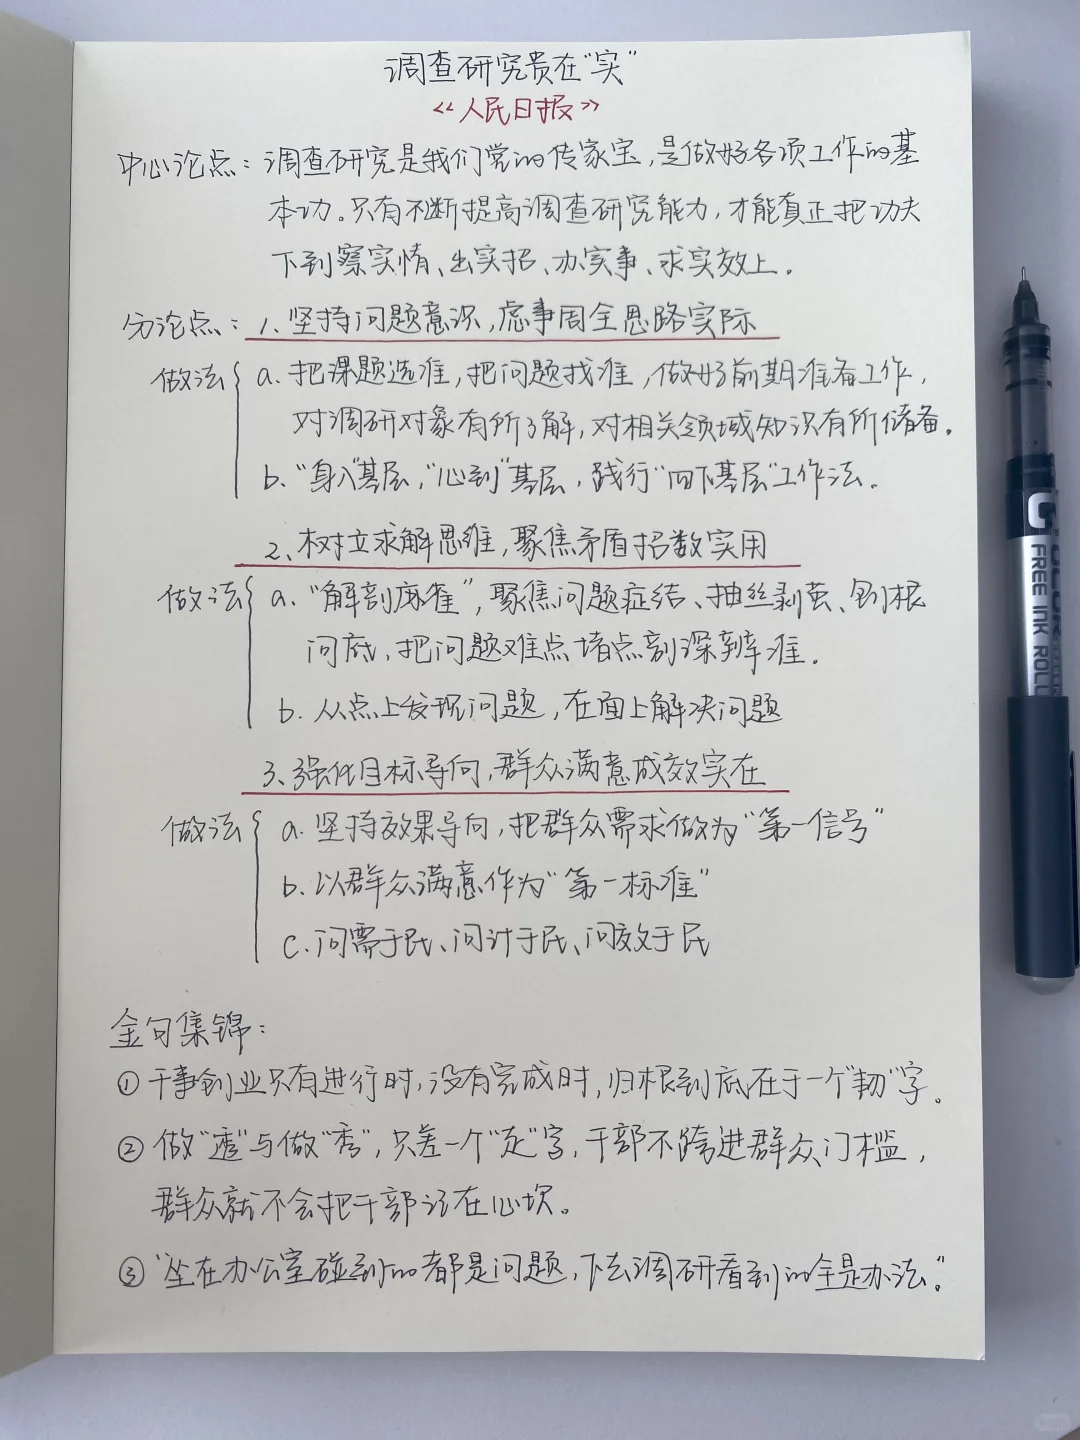 调查研究贵在“实”
《人民日报》
中心论点：调查研究是我们党的传家宝，是做好各项工作的基
本功。只有不断提高调查研究能力，才能真正把功夫
下到察实情、出实招、办实事、求实效上。
分论点：1、坚持问题意识，虑事周全思路实际
做法 a. 把课题选准，把问题找准，做好前期准备工作，
对调研对象有所了解，对相关领域知识有所储备。
b. “身入”基层，“心到”基层，践行“四下基层”工作法。
2、树立求解思维，聚焦矛盾招数实用
做法 a. “解剖麻雀”，聚焦问题症结、抽丝剥茧、刨根
问底，把问题难点堵点剖深辨准。
b. 从点上发现问题，在面上解决问题
3、强化目标导向，群众满意成效实在
做法 a. 坚持效果导向，把群众需求做为“第一信号”
b. 以群众满意作为“第一标准”
c. 问需于民、问计于民、问效于民
金句集锦：
① 干事创业只有进行时，没有完成时，归根到底在于一个“韧”字。
② 做“透”与做“秀”，只差一个“走”字，干部不跨进群众门槛，
群众就不会把干部记在心坎。
③ “坐在办公室碰到的都是问题，下去调研看到的全是办法。”
C
COLOR
FREE INK ROLL